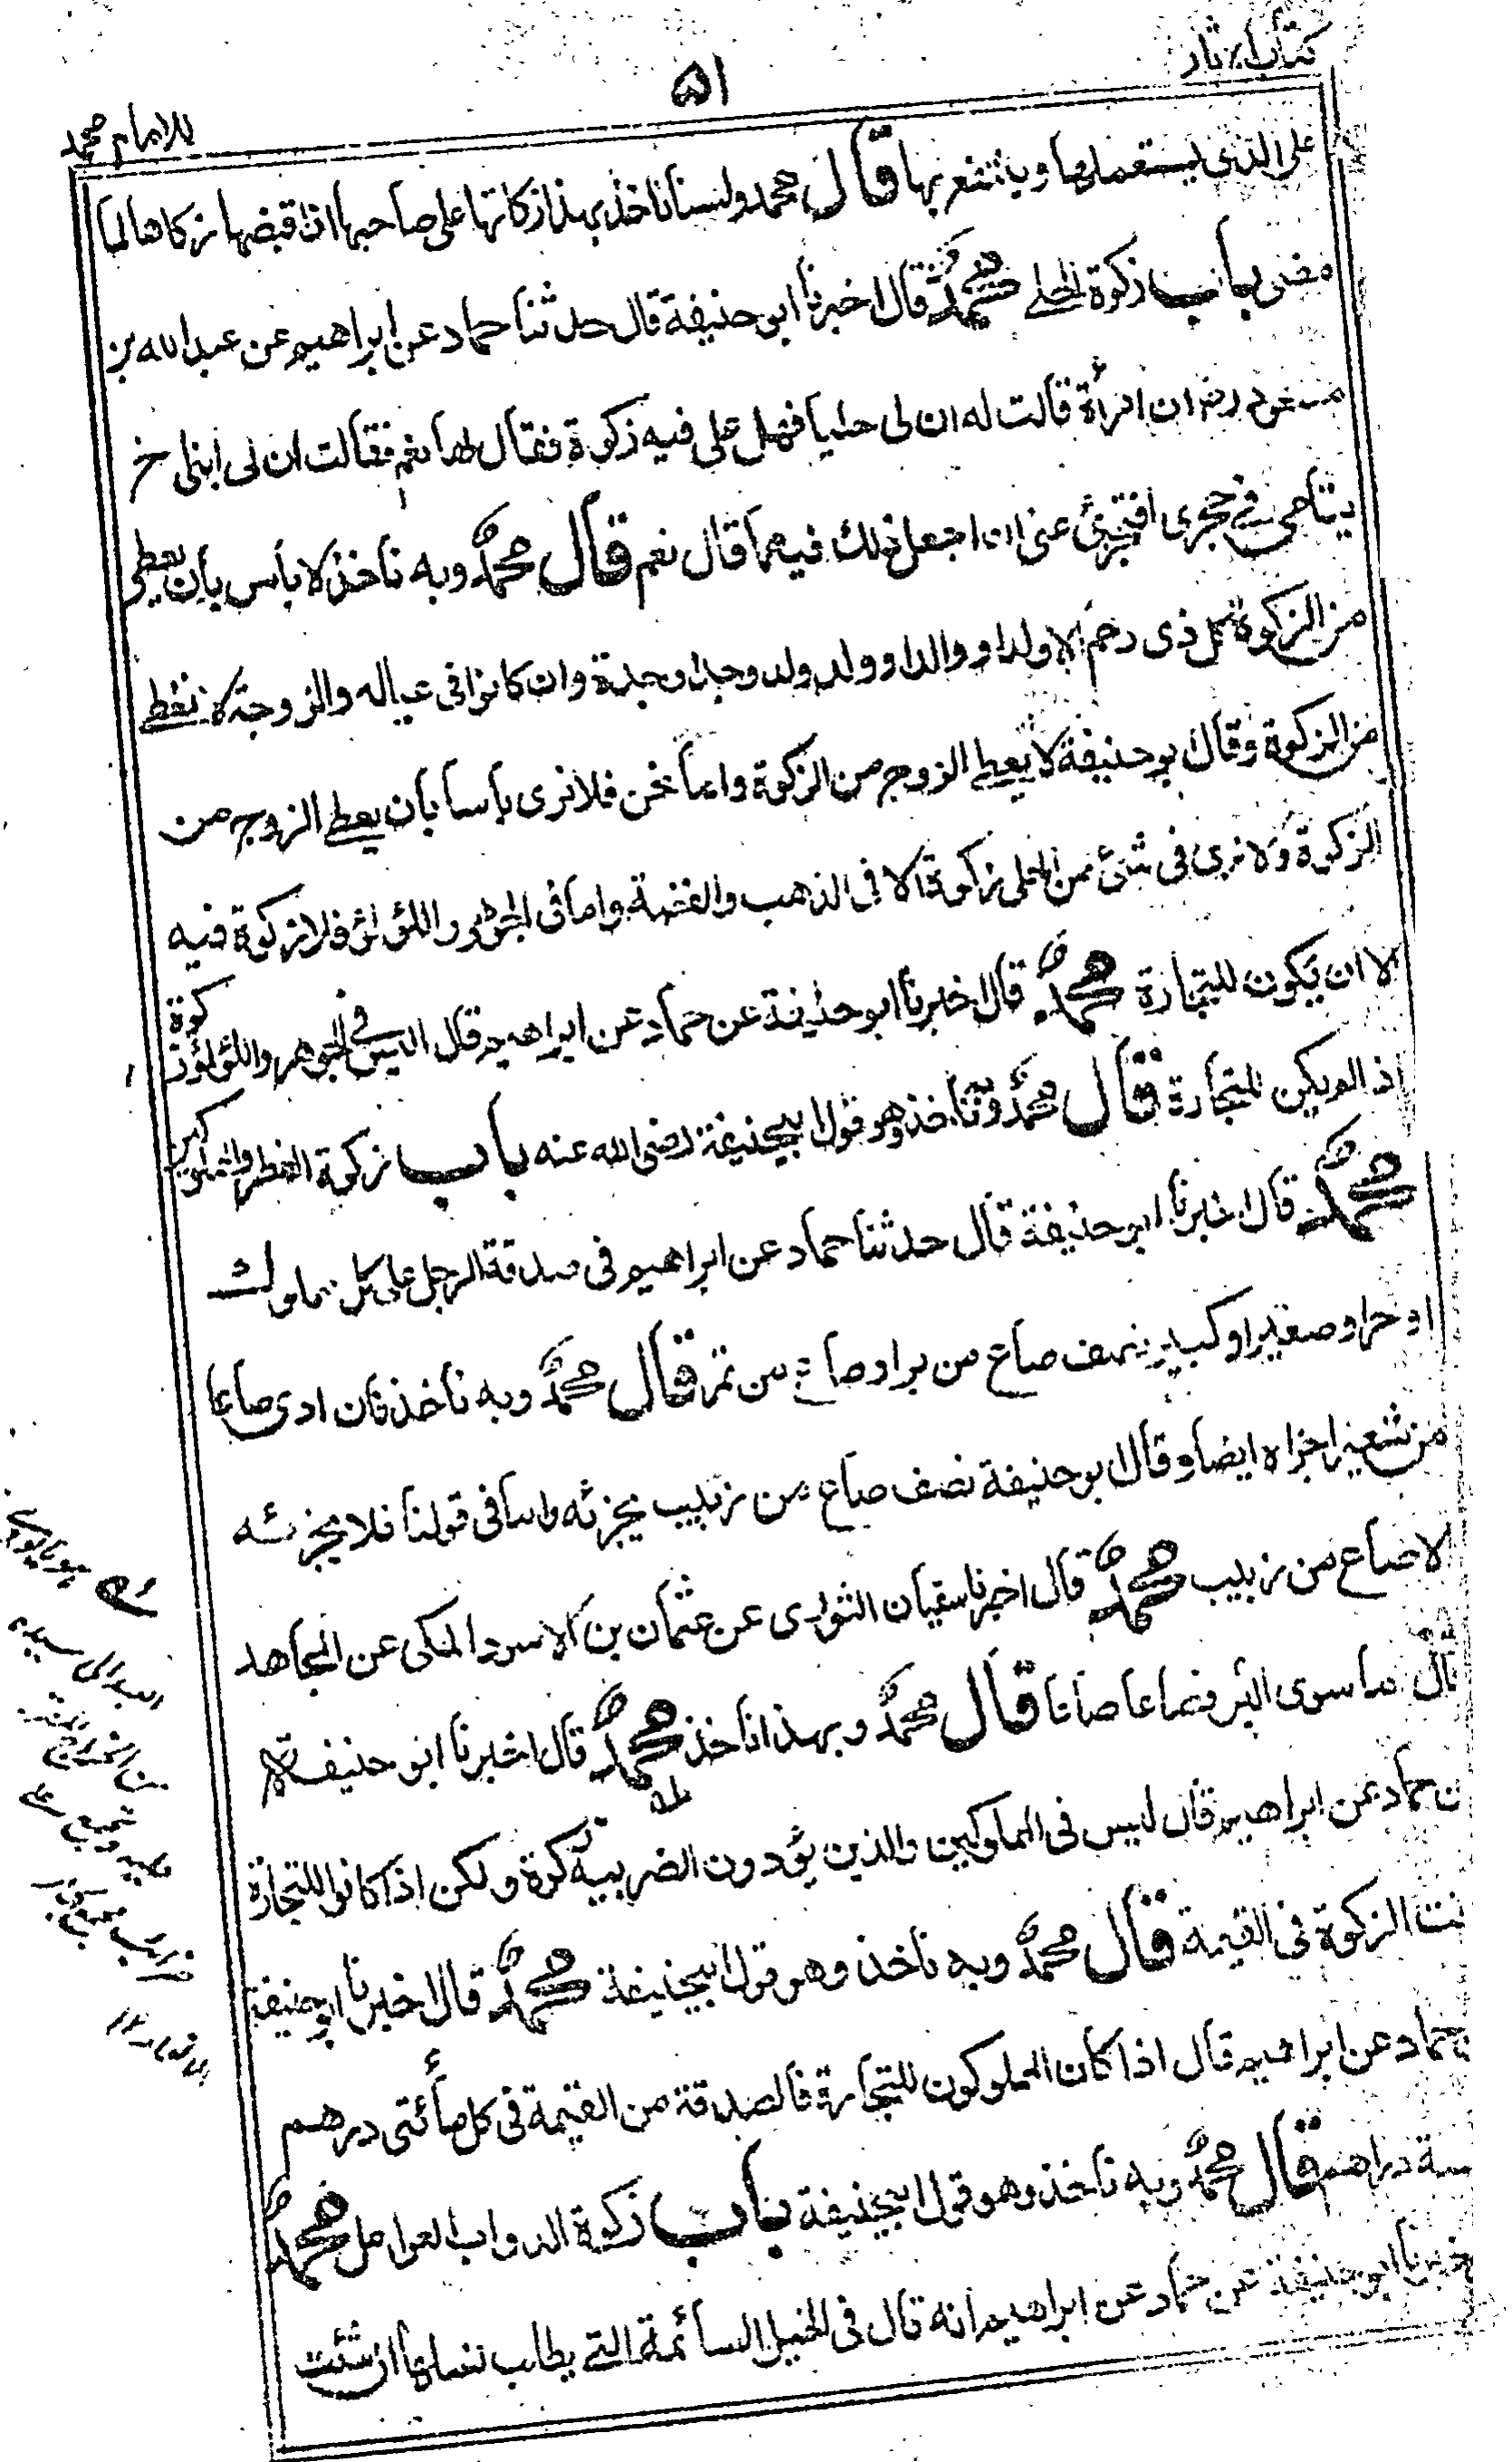 كتاب الآثار
٥١
للامام محمد
على الذى يستعملها وينتفع بها قال محمد ولسنا ناخذ بهذا زكاتها على صاحبها اذا قبضها زكاها لما
مضى باب زكوة الحلے محمد قال اخبرنا ابو حنيفة قال حدثنا حماد عن ابراهيم عن عبد الله بن
مسعود رض ان امرأة قالت له ان لى حليا فهل على فيه زكوة فقال لها نعم فقالت ان لى ابنى اخ
يتامى فے حجرى افتجزئ عنى ان اجعل ذلك فيهما قال نعم قال محمد وبه ناخذ لا بأس بأن يعطى
من الزكوة كل ذى رحم الا ولدا و والدا و ولد ولد وجدا وجدة وان كانوا فى عياله والزوجة لا تعطے
من الزكوة وقال ابو حنيفة لا يعطے الزوج من الزكوة واما نحن فلا نرى بأسا بأن يعطے الزوج من
الزكوة ولا نرى فى شئ من الحلى زكوة الا فى الذهب والفضة واما فى الجوهر واللؤلؤ فلا زكوة فيه
الا ان يكون للتجارة محمد قال اخبرنا ابو حنيفة عن حماد عن ابراهيم قال ليس فى الجوهر واللؤلؤ زكوة
اذا لم يكن للتجارة قال محمد وبه ناخذ وهو قول ابيحنيفة رضى الله عنه باب زكوة الفطر والمملوكين
محمد قال اخبرنا ابو حنيفة قال حدثنا حماد عن ابراهيم فى صدقة الرجل على كل مملوك
او حر او صغير او كبير نصف صاع من بر او صاع من تمر قال محمد وبه ناخذ فان ادى صاعا
من شعير اجزاه ايضا وقال ابو حنيفة نصف صاع من زبيب يجزئه واما فى قولنا فلا يجزئه
الا صاع من زبيب محمد قال اخبرنا سفيان الثورى عن عثمان بن الاسود المكى عن المجاهد
قال ما سوى البر فصاعا صاعا قال محمد وبهذا ناخذ محمد قال اخبرنا ابو حنيفة
عن حماد عن ابراهيم قال ليس فى المملوكين والذين يؤدون الضريبة زكوة ولكن اذا كانوا للتجارة
كانت الزكوة فى القيمة قال محمد وبه ناخذ وهو قول ابيحنيفة محمد قال اخبرنا ابو حنيفة
عن حماد عن ابراهيم قال اذا كان المملوكون للتجارة فالصدقة من القيمة فى كل مأتى درهم
خمسة دراهم قال محمد وبه ناخذ وهو قول ابيحنيفة باب زكوة الدواب العوامل محمد
اخبرنا ابو حنيفة عن حماد عن ابراهيم انه قال فى الخيل السائمة التے يطلب نسلها ان شئت